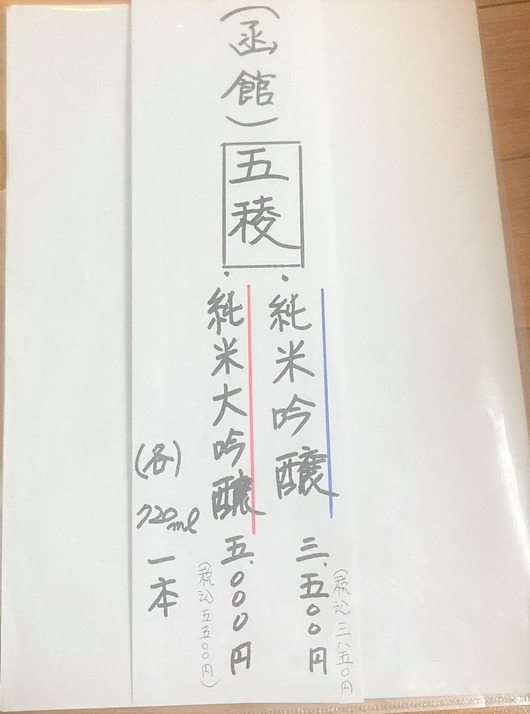 (函館)
五稜
・純米吟醸 三、五〇〇円
(税込 三八五〇円
・純米大吟醸 五、〇〇〇円
(税込 五五〇〇円)
(各)
720ml
一本